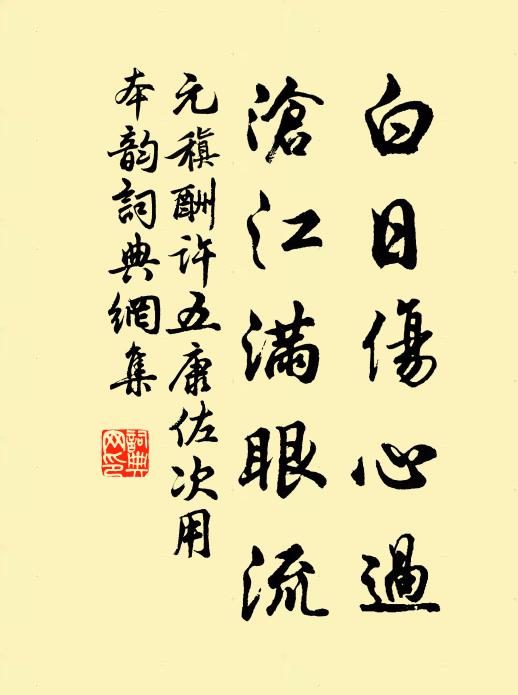 白日傷心過
滄江滿眼流
元稹酬許五康佐次用
本韵詞典網集
詞典
网印